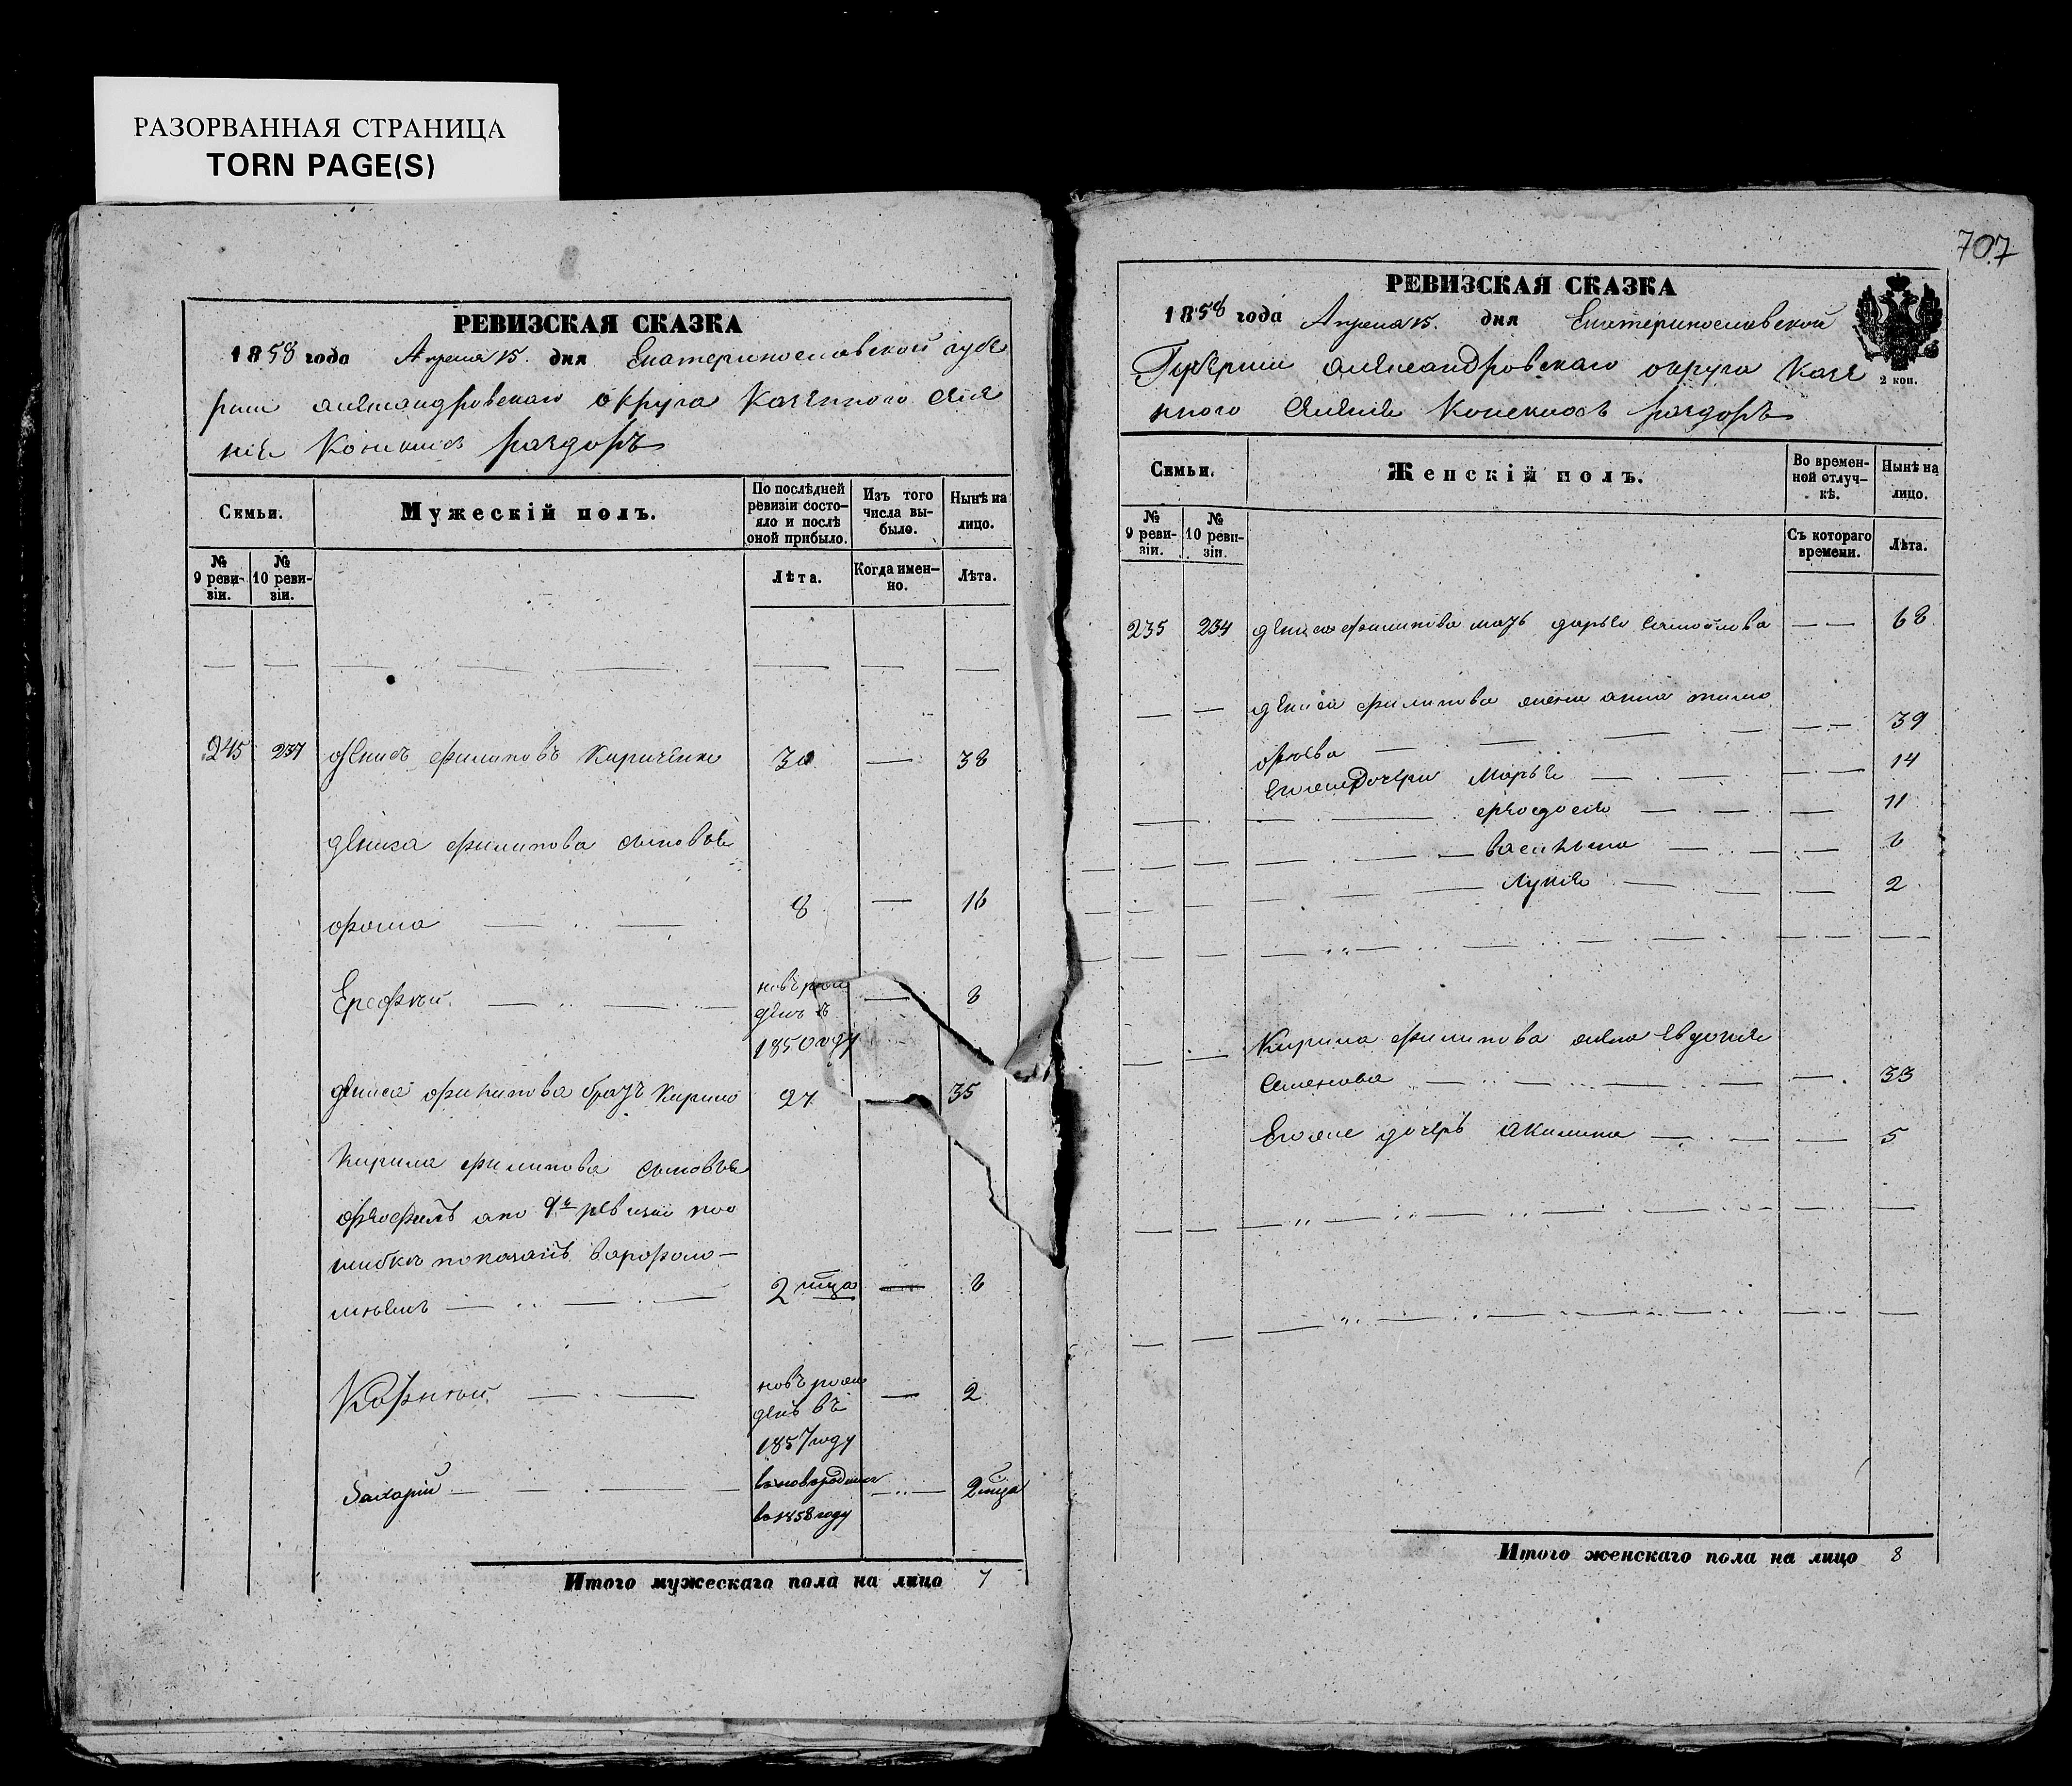 РАЗОРВАННАЯ СТРАНИЦА
TORN PAGE(S)
РЕВИЗСКАЯ СКАЗКА
1858 года Апреля 15. дня Екатеринославской губе
рнии александровскаго округа Казеннаго Селе
нія Конскихъ раздоръ
Семьи.
Мужескій полъ.
По послѣдней
ревизіи состо-
яло и послѣ
оной прибыло.
Изъ того
числа вы-
было.
Нынѣ на
лицо.
№
9 реви-
зіи.
№
10 реви-
зіи.
Лѣта.
Когда имен-
но.
Лѣта.
245 237 Денисъ филиповъ Кириченко 30 38
Дениса филипова сыновья
фома 8 16
Ерофѣй новорож 8
денъ въ
1850 году
Дениса филипова братъ Кирило 27 35
Кирила филипова сыновья
феофилъ а по 9й ревизии поо
шибкѣ показанъ варфоло-
мѣемъ 2 мца 8
Корнѣй новорож 2
денъ въ
1857 году
Захарій 2 мца
въ 1858 году
Итого мужескаго пола на лицо 7
707
РЕВИЗСКАЯ СКАЗКА
1858 года Апреля 15. дня Екатеринославской
Губернии александровскаго округа Казе
ннаго Селенія Конскихъ раздоръ
2 коп.
Семьи.
Женскій полъ.
Во времен-
ной отлуч-
кѣ.
Нынѣ на
лицо.
№
9 реви-
зіи.
№
10 реви-
зіи.
Съ котораго
времени.
Лѣта.
235 234 Дениса филипова мать дарья Самойлова 68
Дениса филипова жена анна тимо
фѣева 39
Егоже Дочери Марья 14
феодосія 11
василиса 6
Лукія 2
Кирила филипова жена Евдокія
Семенова 33
Егоже дочерь акилина 5
Итого женскаго пола на лицо 8